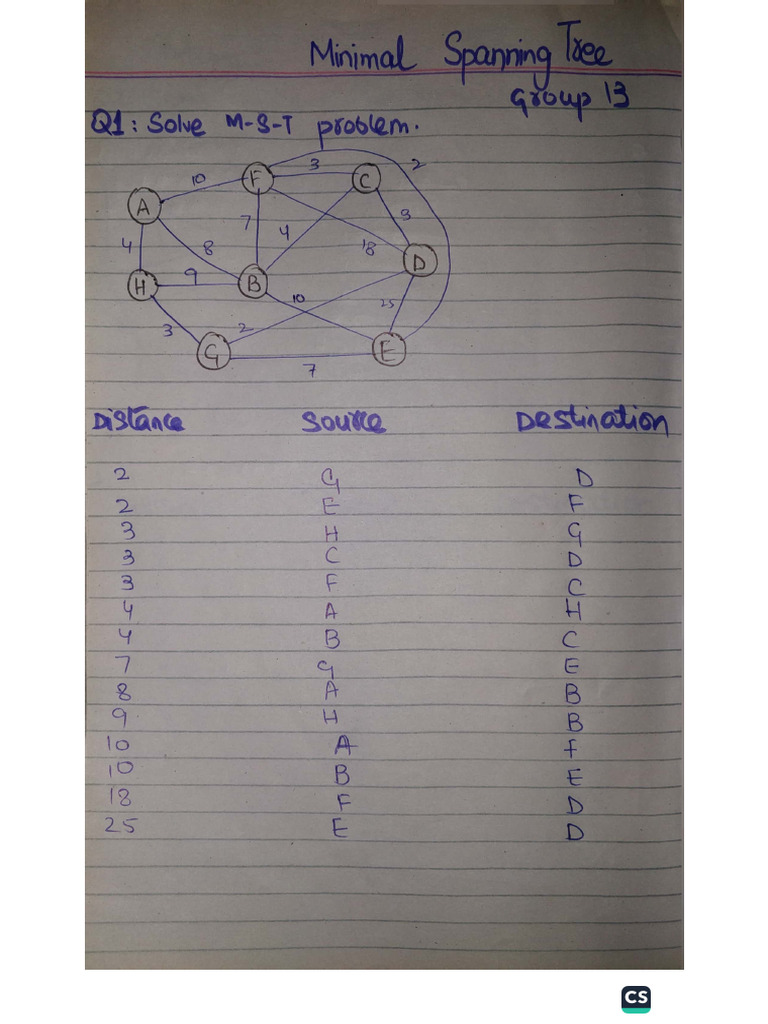 Minimal Spanning Tree
Group 13
Q1: Solve M-S-T problem.
3
2
10
F
C
A
7
4
3
4
8
18
D
H
9
B
10
25
3
2
G
E
7
Distance Source Destination
2 G D
2 E F
3 H G
3 C D
3 F C
4 A H
4 B C
7 G E
8 A B
9 H B
10 A F
10 B E
18 F D
25 E D
CS